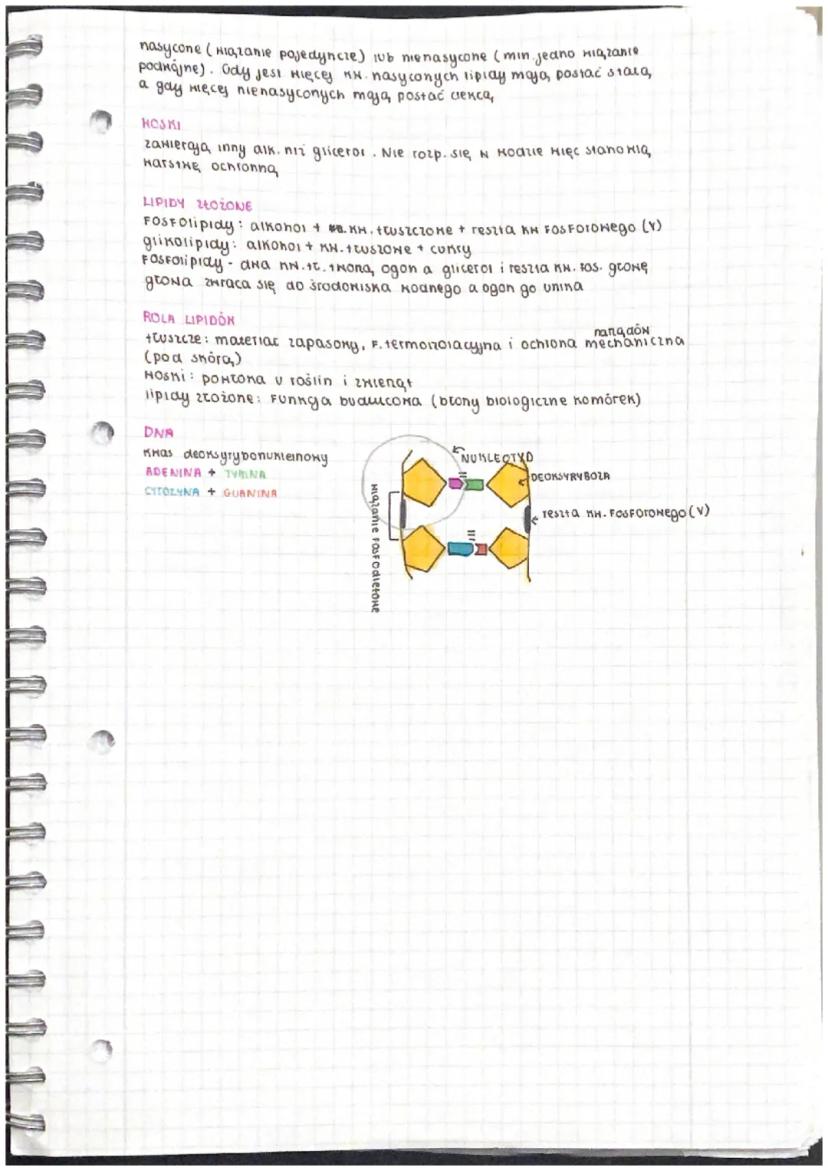 nasycone (wiązanie pojedyncze) lub nienasycone (min. jedno wiązanie
podwójne). Gdy jest więcej kw. nasyconych lipidy mają postać stałą,
a gdy więcej nienasyconych mają postać ciekłą
WOSKI
zawierają inny alk. niż glicerol. Nie rozp. się w wodzie więc stanowią
warstwę ochronną
LIPIDY ZŁOŻONE
FOSFOLIPIDY: alkohol + kw. tłuszczone + reszta kw fosforowego (V)
glikolipidy: alkohol + kw. tłuszowe + cukry
FOSFOLIPIDY - dwa kw. tł. tworzą ogon a glicerol i reszta kw. fos. głowę
głowa zwraca się do środowiska wodnego a ogon go unika
ROLA LIPIDÓW
tłuszcze: materiał zapasowy, f. termoizolacyjna i ochrona mechaniczna narządów
(pod skórą)
WOSKI: powłoka u roślin i zwierząt
lipidy złożone: funkcja budulcowa (błony biologiczne komórek)
DNA
kwas deoksyrybonukleinowy
ADENINA + TYMINA
CYTOZYNA + GUANINA
NUKLEOTYD
DEOKSYRYBOZA
reszta kw. fosforowego (V)
wiązanie fosfodiestowe